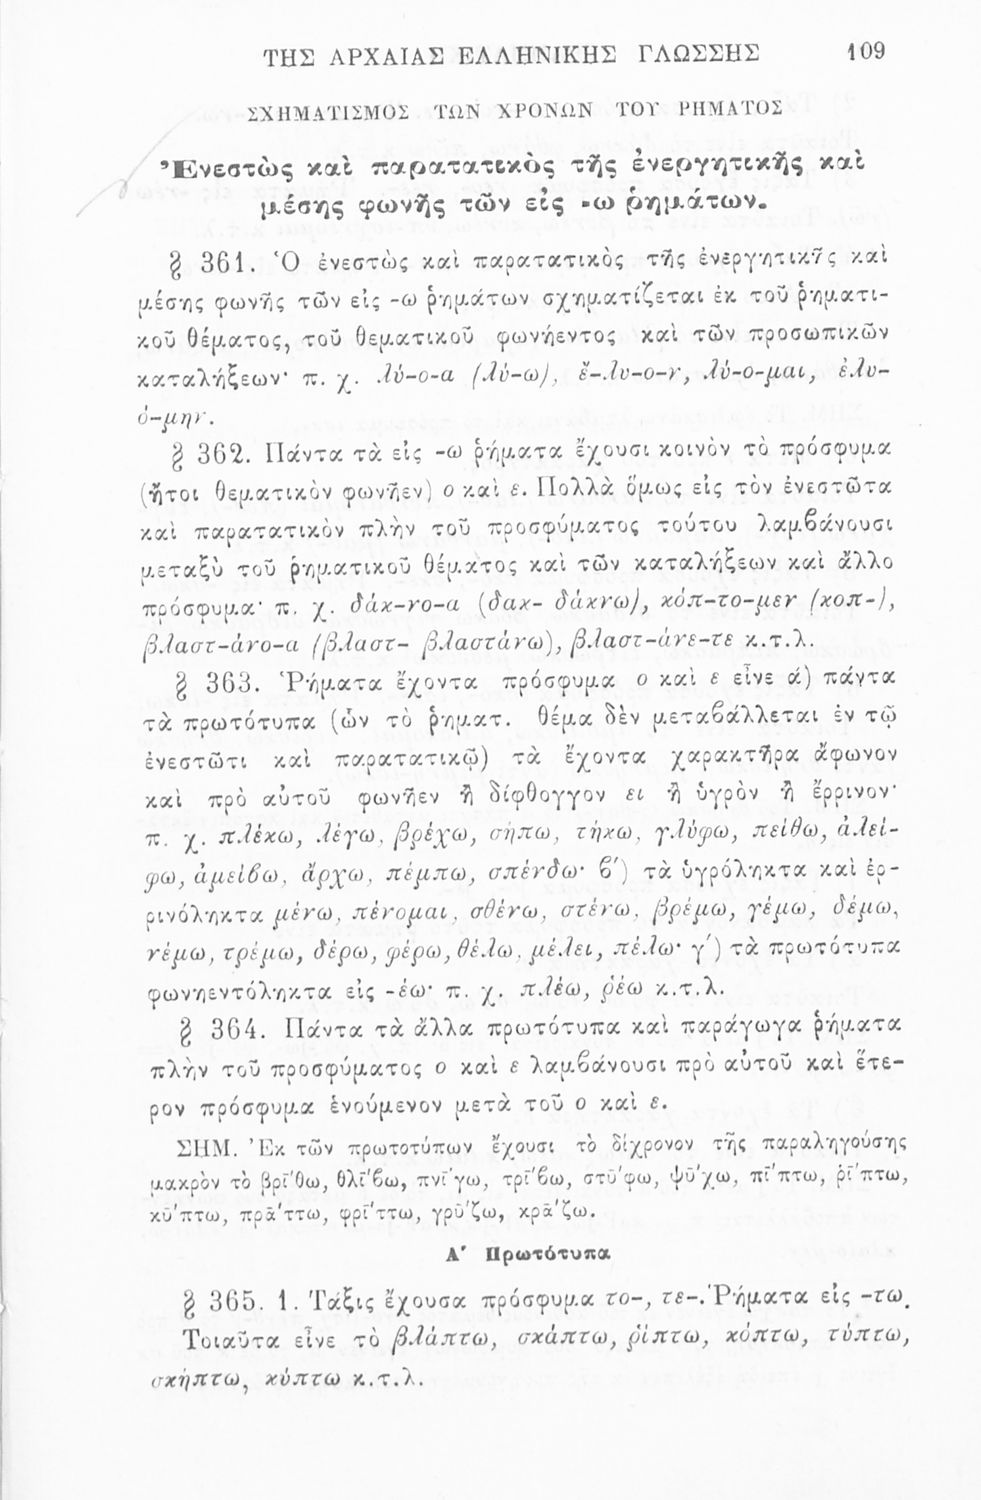 ΤΗΣ ΑΡΧΑΙΑΣ ΕΛΛΗΝΙΚΗΣ ΓΛΩΣΣΗΣ 109
ΣΧΗΜΑΤΙΣΜΟΣ ΤΩΝ ΧΡΟΝΩΝ ΤΟΥ ΡΗΜΑΤΟΣ
Ἐνεστὼς καὶ παρατατικὸς τῆς ἐνεργητικῆς καὶ
μέσης φωνῆς τῶν εἰς -ω ῥημάτων.
§ 361. Ὁ ἐνεστὼς καὶ παρατατικὸς τῆς ἐνεργητικῆς καὶ
μέσης φωνῆς τῶν εἰς -ω ῥημάτων σχηματίζεται ἐκ τοῦ ῥηματι-
κοῦ θέματος, τοῦ θεματικοῦ φωνήεντος καὶ τῶν προσωπικῶν
καταλήξεων· π. χ. λύ-ο-α (λύ-ω), ἔ-λυ-ο-ν, λύ-ο-μαι, ἐλυ-
ό-μην.
§ 362. Πάντα τὰ εἰς -ω ῥήματα ἔχουσι κοινὸν τὸ πρόσφυμα
(ἤτοι θεματικὸν φωνῆεν) ο καὶ ε. Πολλὰ ὅμως εἰς τὸν ἐνεστῶτα
καὶ παρατατικὸν πλὴν τοῦ προσφύματος τούτου λαμβάνουσι
μεταξὺ τοῦ ῥηματικοῦ θέματος καὶ τῶν καταλήξεων καὶ ἄλλο
πρόσφυμα· π. χ. δάκ-νο-α (δακ- δάκνω), κόπ-το-μεν (κοπ-),
βλαστ-άνο-α (βλαστ- βλαστάνω), βλαστ-άνε-τε κ.τ.λ.
§ 363. Ῥήματα ἔχοντα πρόσφυμα ο καὶ ε εἶνε ά) πάντα
τὰ πρωτότυπα (ὧν τὸ ῥηματ. θέμα δὲν μεταβάλλεται ἐν τῷ
ἐνεστῶτι καὶ παρατατικῷ) τὰ ἔχοντα χαρακτῆρα ἄφωνον
καὶ πρὸ αὐτοῦ φωνῆεν ἢ δίφθογγον ει ἢ ὑγρὸν ἢ ἔρρινον·
π. χ. πλέκω, λέγω, βρέχω, σήπω, τήκω, γλύφω, πείθω, ἀλεί-
φω, ἀμείβω, ἄρχω, πέμπω, σπένδω· β΄) τὰ ὑγρόληκτα καὶ ἐρ-
ρινόληκτα μένω, πένομαι, σθένω, στένω, βρέμω, γέμω, δέμω,
νέμω, τρέμω, δέρω, φέρω, θέλω, μέλει, πέλω· γ΄) τὰ πρωτότυπα
φωνηεντόληκτα εἰς -έω· π. χ. πλέω, ῥέω κ.τ.λ.
§ 364. Πάντα τὰ ἄλλα πρωτότυπα καὶ παράγωγα ῥήματα
πλὴν τοῦ προσφύματος ο καὶ ε λαμβάνουσι πρὸ αὐτοῦ καὶ ἕτε-
ρον πρόσφυμα ἑνούμενον μετὰ τοῦ ο καὶ ε.
ΣΗΜ. Ἐκ τῶν πρωτοτύπων ἔχουσι τὸ δίχρονον τῆς παραληγούσης
μακρὸν τὸ βρῑ́θω, θλῑ́βω, πνῑ́γω, τρῑ́βω, στῡ́φω, ψῡ́χω, πῑ́πτω, ῥῑ́πτω,
κῡ́πτω, πρᾱ́ττω, φρῑ́ττω, γρῡ́ζω, κρᾱ́ζω.
Α΄ Πρωτότυπα
§ 365. 1. Τάξις ἔχουσα πρόσφυμα το-, τε-. Ῥήματα εἰς -τω.
Τοιαῦτα εἶνε τὸ βλάπτω, σκάπτω, ῥίπτω, κόπτω, τύπτω,
σκήπτω, κύπτω κ.τ.λ.